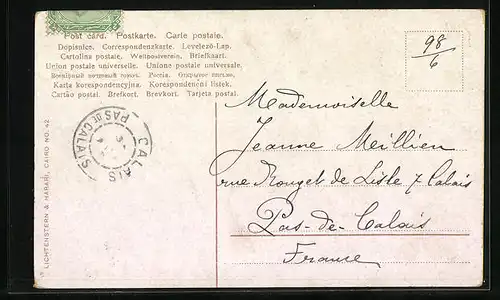 Post card. Postkarte. Carte postale.
Dopisnice. Correspondenzkarte. Levelező-Lap.
Cartolina postale. Weltpostverein. Briefkaart.
Union postale universelle. Unione postale universale.
Karta korespondencyjna. Korespondenční lístek.
Cartão postal. Brefkort. Brevkort. Tarjeta postal.
98/6
Mademoiselle
Jeanne Meillien
rue Rouget de Lisle 7 Calais
Pas-de-Calais
France
CALAIS
PAS DE CALAIS
LICHTENSTERN & HARARI, CAIRO NO. 42